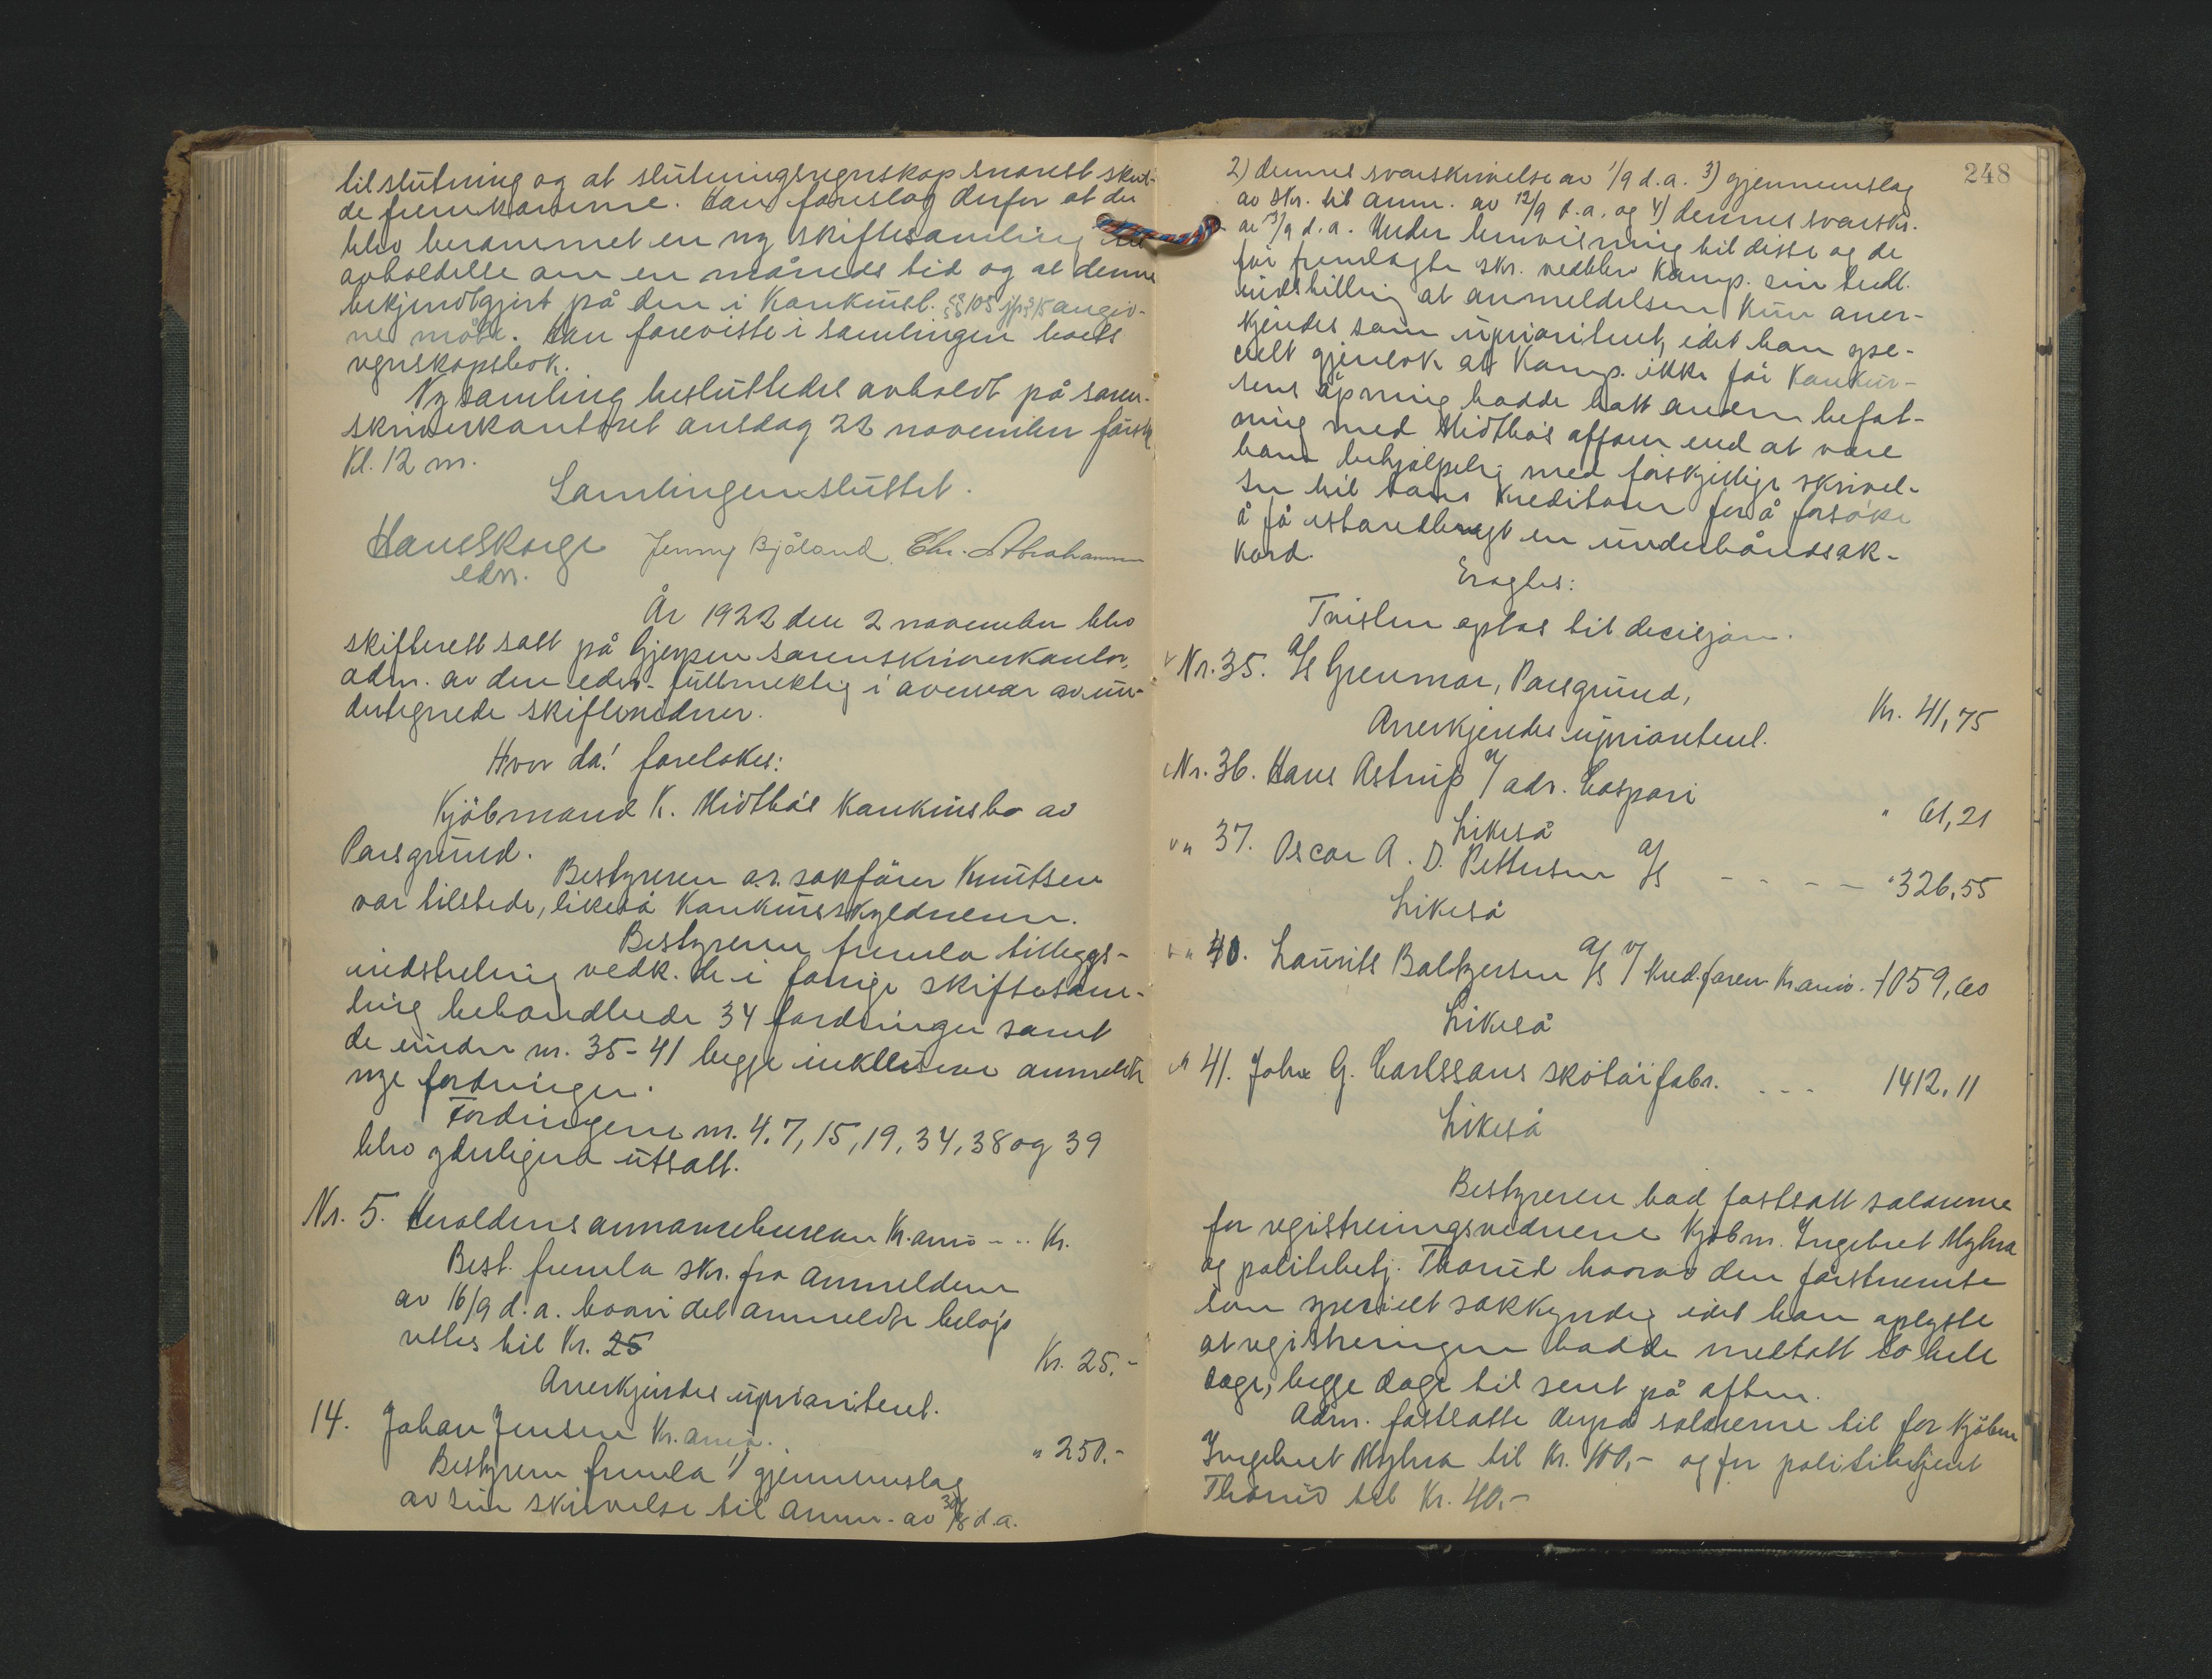 til slutning og at slutningsregnskap snarest skul-
de fremkomme. Han foreslog derfor at der
blev berammet en ny skiftesamling til
avholdelse om en måneds tid og at denne
bekjendtgjørt på den i Konkursl. §§ 105 jfr. 15 angiv-
ne måte. Han foreviste i samlingen boets
regnskapsbok.
Ny samling besluttedes avholdt på soren-
skriverkontoret onsdag 22 november førstk.
Kl. 12 m.
Samlingen sluttet.
Hans Skorge Jenny Bjåland. Chr. Abrahamsen
edsv.
År 1922 den 2 november blev
skifterett satt på Gjerpen sorenskriverkontor,
adm. av den edsv. fullmektig i overvær av un-
dertegnede skiftevidner.
Hvor da! foretokes:
Kjøbmand K. Midtbøs Konkursbo av
Porsgrund.
Bestyreren o.r. sakfører Knutsen
var tilstede, likeså Konkursskyldneren.
Bestyreren fremla tilleggs-
indstilling vedk. de i forrige skiftesam-
ling behandlede 34 fordringer samt
de under nr. 35-41 begge inklusive anmeldte
nye fordringer.
Fordringene nr. 4, 7, 15, 19, 34, 38 og 39
blev ytterligere utsatt.
Nr. 5. Heroldens annoncebureau Kr.ania - - - Kr.
Best. fremla skr. fra anmelderen
av 16/9 d.a. hvori det anmeldte beløp
rettes til Kr. 25
Kr. 25.-
Anerkjendes uprioritert.
14. Johan Jensen Kr.ania.
" 250.-
Bestyreren fremla 1) gjennemslag
av sin skrivelse til anm. av 30/8 d.a.
248
2) dennes svarskrivelse av 1/9 d.a. 3) gjennemslag
av skr. til anm. av 12/9 d.a. og 4) dennes svarskr.
av 13/9 d.a. Under henvisning til disse og de
før fremlagte skr. vedblev Komp. sin tidl.
indstilling at anmeldelsen kun aner-
kjendes som uprioritert, idet han spe-
cielt gjentok at Komp. ikke før Konkur-
sens åpning hadde hatt anden befat-
ning med Midtbøs affærer end at være
ham behjælpelig med forskjellige skrivel-
ser til hans Kreditorer for å forsøke
å få istandbragt en underhåndsak-
kord.
Eragtes:
Tvisten optas til decisjon.
Nr. 35. A/S Grenmar, Porsgrund,
Kr. 41,75
Anerkjendes uprioritert.
Nr. 36. Hans Astrup v/ adr. Caspari
" 61,21
Likeså
" 37. Oscar A. D. Pettersen A/S - - - - " 326,55
Likeså
" 40. Laurits Baltzersen A/S v/ Kred.foren. Kr.ania. 1059,60
Likeså
" 41. John G. Carlssons skotøifabr. - - - 1412.11
Likeså
Bestyreren bad fastsatt salærene
for registreringsvidnene Kjøbm. Ingebret Myhra
og politibetj. Thorud hvorav den førstnevnte
som specielt sakkyndig idet han oplyste
at registreringen hadde medtatt to hele
dage, begge dage til sent på aften.
Adm. fastsatte derpå salærene til for Kjøbm.
Ingebret Myhra til Kr. 100,- og for politibetjent
Thorud til Kr. 40.-